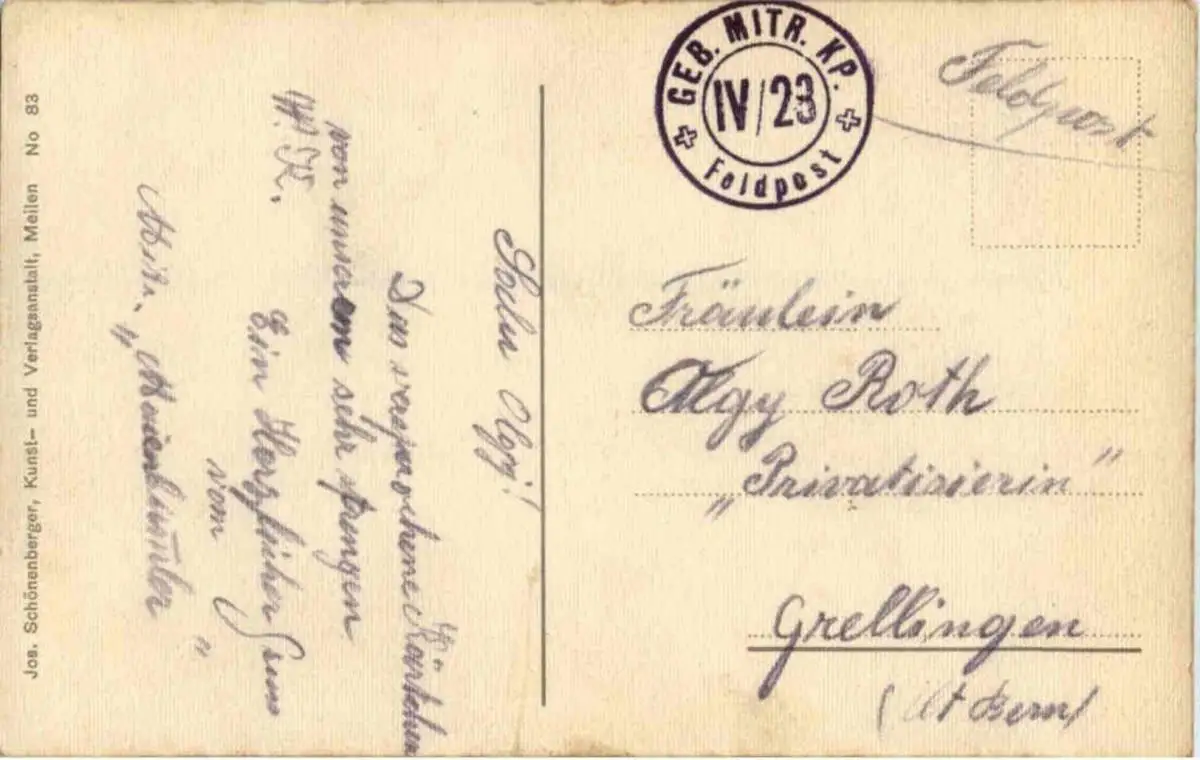 GEB. MITR. KP.
IV/23
Feldpost
Feldpost
Fräulein
Olgy Roth
„Privatisierin“
Grellingen
(Kt Bern)
Salu Olgy!
Das versprochene Kärtchen
von unserem sehr strengen
W.K.
Ein Herzlicher Gruss
vom
Mitr.
Jos. Schönenberger, Kunst- und Verlagsanstalt, Meilen No 83